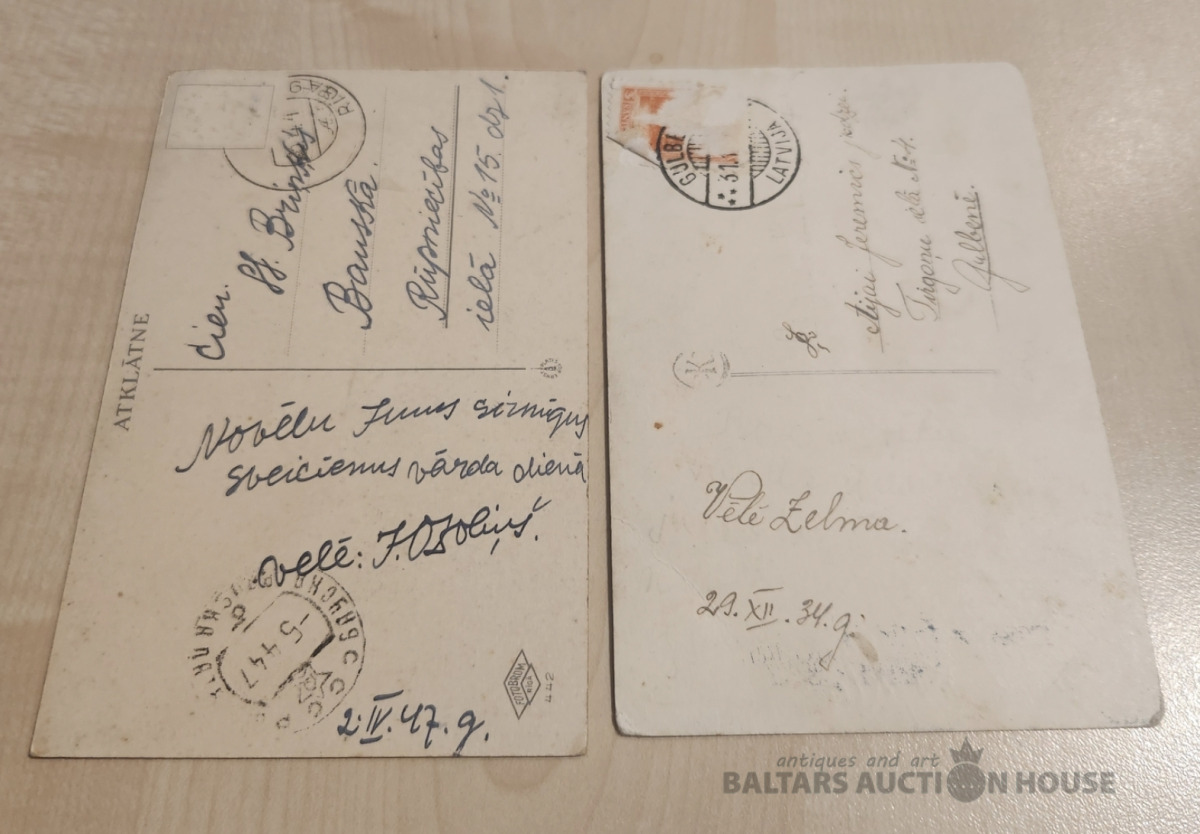 ATKLĀTNE
RIGA
Cien.
Bauska.
Rūpniecības
ielā № 15. dz 1.
Novēlu Jums sirnigus
sveicienus vārda dienā
vēlē: J. Ozoliņš.
БАУСКА СССР
-5 4 47
2. IV. 47. g.
FOTOBROM
RIGA
442
GULBE
31.1
LATVIJA
Jeremics
Tirgoņu ielā № 4.
Gulbenē.
K
Vēlē Zelma.
29. XII. 34. g.
antiques and art
BALTARS AUCTION HOUSE